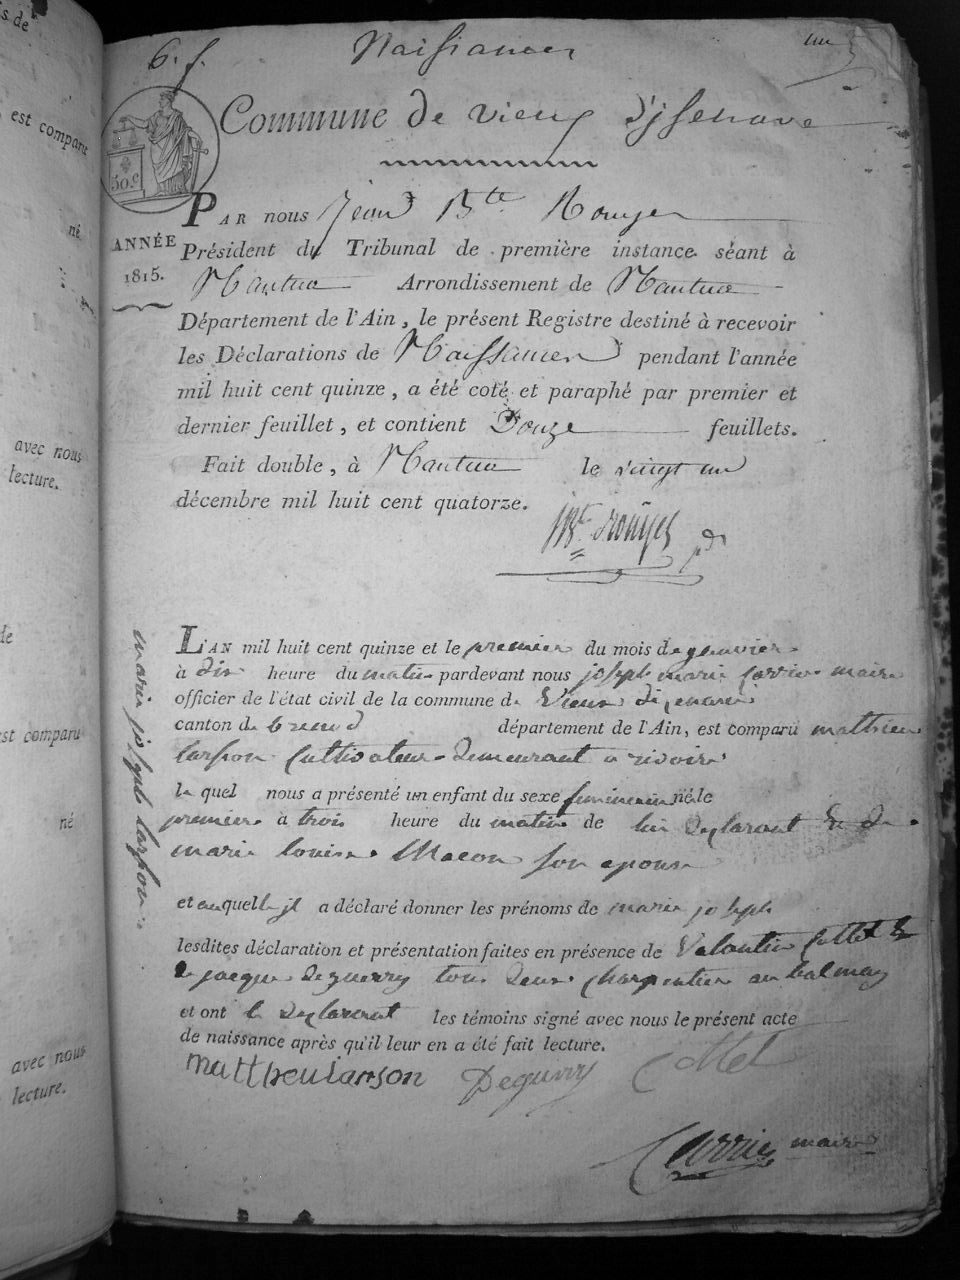 6. f. Naissances un
Commune de vieux d'jsenave
50.c
ANNÉE
1815.
PAR nous Jean Bte Rouyer
Président du Tribunal de première instance séant à
Nantua Arrondissement de Nantua
Département de l'Ain, le présent Registre destiné à recevoir
les Déclarations de Naissances pendant l'année
mil huit cent quinze, a été coté et paraphé par premier et
dernier feuillet, et contient Douze feuillets.
Fait double, à Nantua le vingt un
décembre mil huit cent quatorze.
JBte Rouyer pdt
marie joseph larson
L'AN mil huit cent quinze et le premier du mois de genvier
à dix heure du matin pardevant nous joseph marie Carrier maire
officier de l'état civil de la commune de Vieux dizenave
canton de brenod département de l'Ain, est comparu mathieu
larson Cultivateur demeurant a rivoire
le quel nous a présenté un enfant du sexe feminin né le
premier à trois heure du matin de lui declarant et de
marie louise Macon son epouse
et auquelle jl a déclaré donner les prénoms de marie joseph
lesdites déclaration et présentation faites en présence de Valentin Collet
jacque deguerry tous deux charpentier au balmay
et ont le declarant les témoins signé avec nous le présent acte
de naissance après qu'il leur en a été fait lecture.
mattheu larson Deguerry Collet
Carrier maire
est comparu
né
avec nous
lecture.
de
est comparu
né
avec nous
lecture.